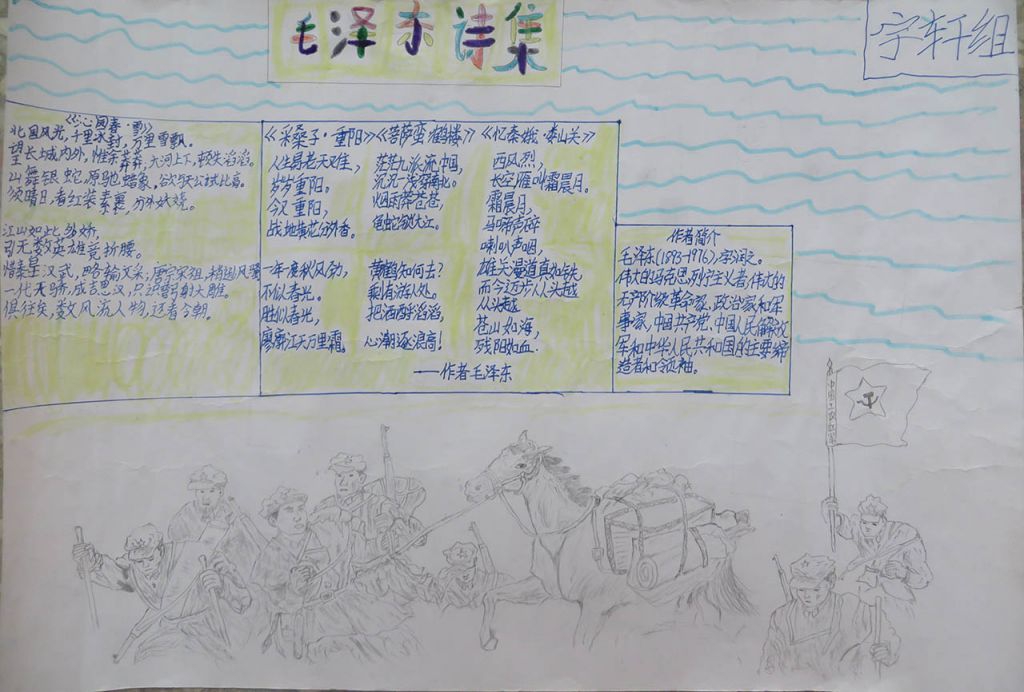 毛泽东诗集
宇轩组
《沁园春·雪》
北国风光，千里冰封，万里雪飘。
望长城内外，惟余莽莽，大河上下，顿失滔滔。
山舞银蛇，原驰蜡象，欲与天公试比高。
须晴日，看红装素裹，分外妖娆。
江山如此多娇，
引无数英雄竞折腰。
惜秦皇汉武，略输文采；唐宗宋祖，稍逊风骚
一代天骄，成吉思汉，只识弯弓射大雕。
俱往矣，数风流人物，还看今朝。
《采桑子·重阳》
人生易老天难，
岁岁重阳。
今又重阳，
战地黄花分外香。
一年度秋风劲，
不似春光。
胜似春光，
寥廓江天万里霜。
《菩萨蛮·鹤楼》
茫茫九派流中国，
沉沉一线穿南北。
烟雨莽苍苍，
龟蛇锁大江。
黄鹤知何去？
剩有游人处。
把酒酹滔滔，
心潮逐浪高！
《忆秦娥·娄山关》
西风烈，
长空雁叫霜晨月。
霜晨月，
马啼声碎
喇叭声咽，
雄关漫道真如铁，
而今迈步从头越
从头越，
苍山如海，
残阳如血.
——作者毛泽东
作者简介
毛泽东(1893-1976)，字润之。
伟大的马克思列宁主义者，伟大的
无产阶级革命家、政治家和军
事家，中国共产党、中国人民解放
军和中华人民共和国的主要缔
造者和领袖。